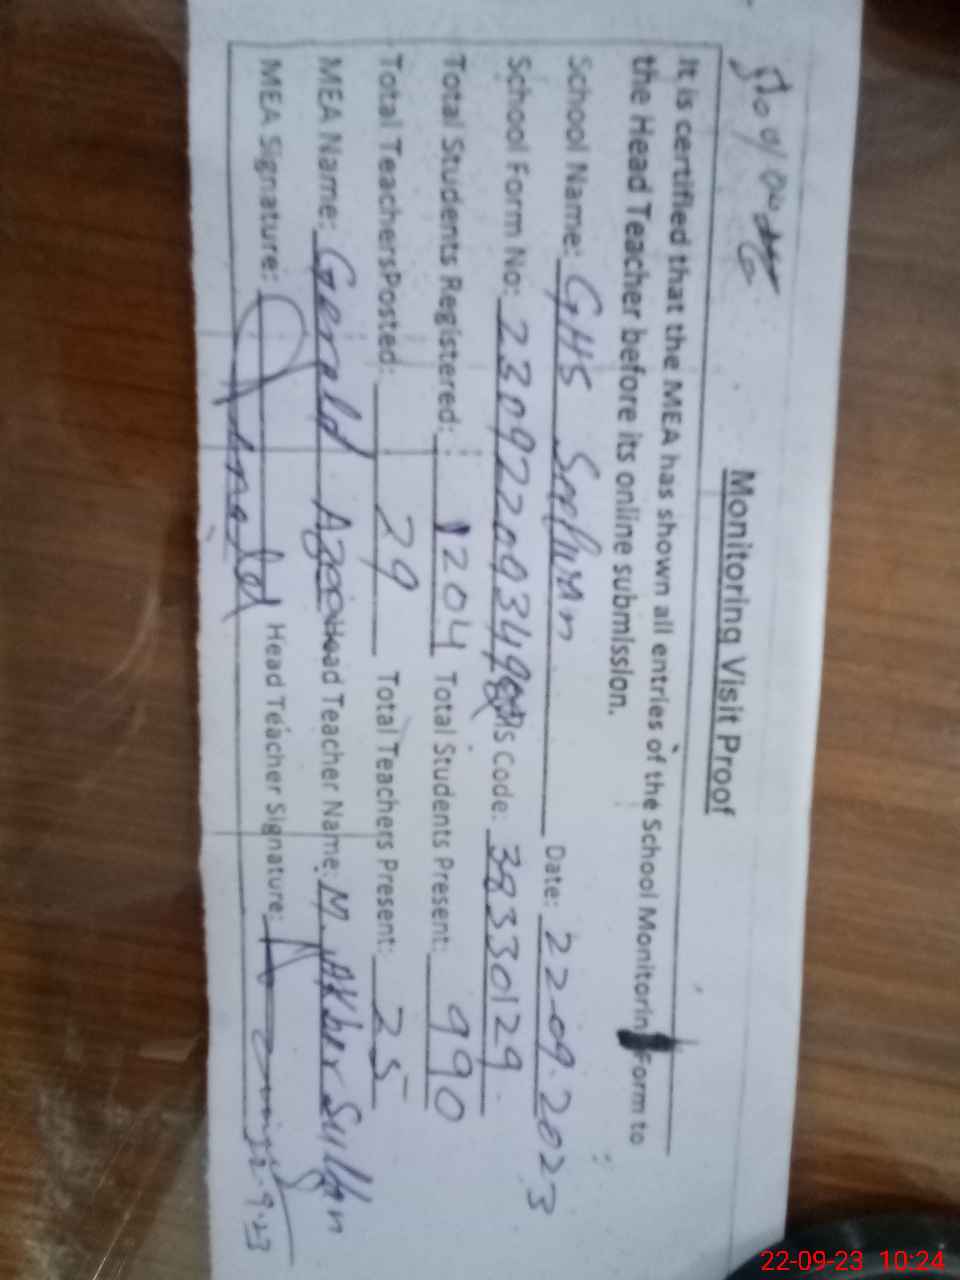 Monitoring Visit Proof
It is certified that the MEA has shown all entries of the School Monitorin Form to
the Head Teacher before its online submission.
School Name: GHS Date: 22-09-2023
School Form No: Code: 38330129
Total Students Registered: 1204 Total Students Present: 990
Total TeachersPosted: 29 Total Teachers Present: 25
MEA Name: Gerald Head Teacher Name: M. Akber
MEA Signature: Head Teacher Signature:
22-09-23 10:24